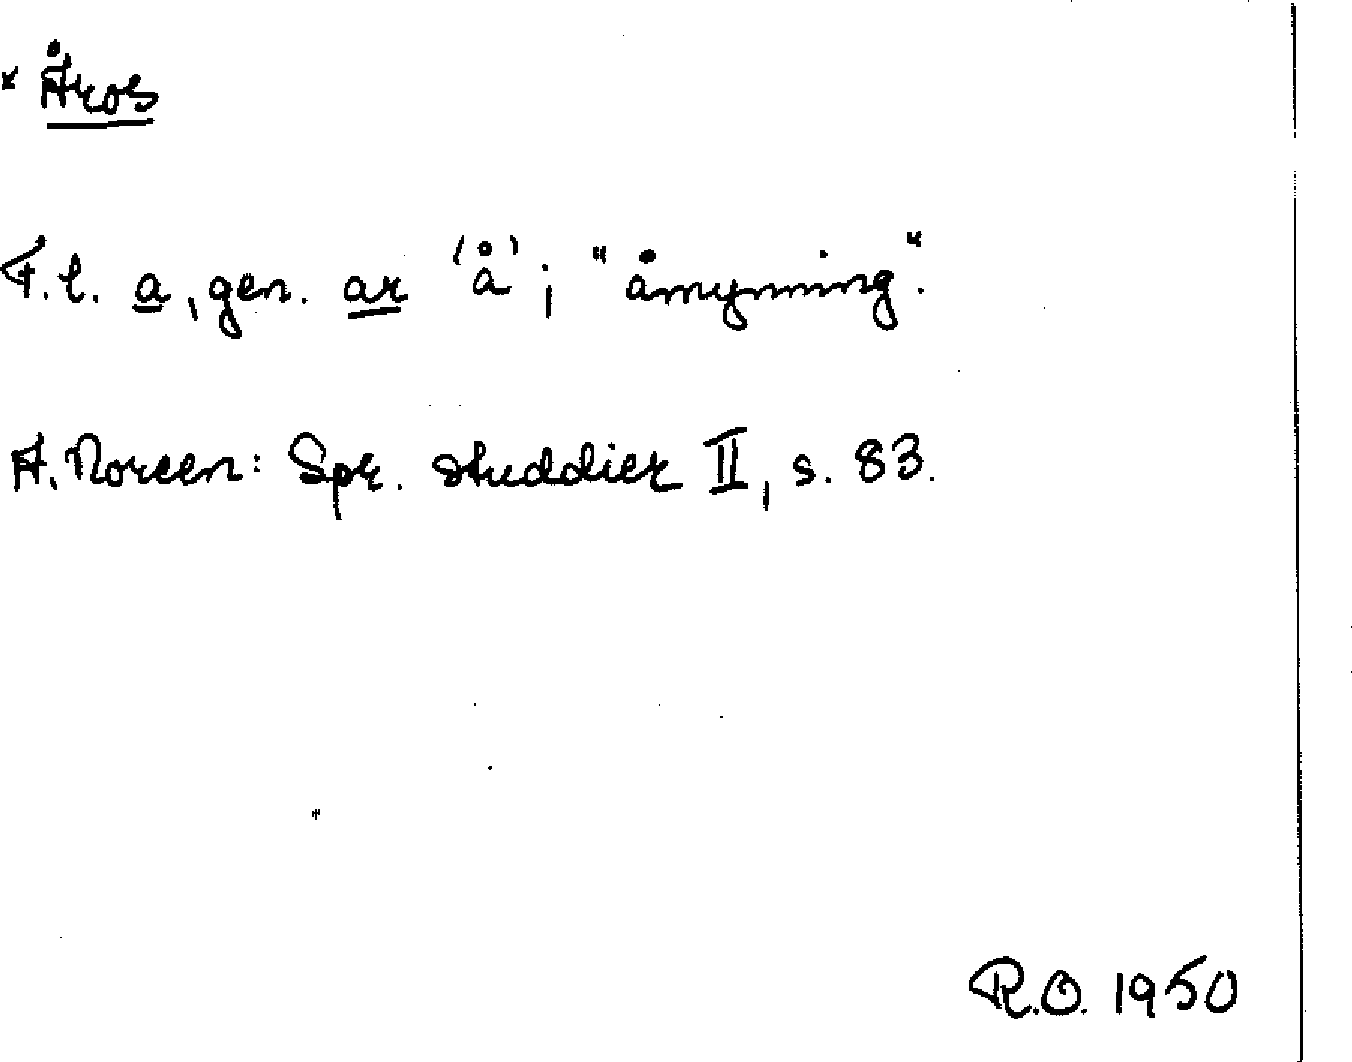 * Åros
F.l. a, gen. ar 'å'; "åmynning".
A. Noreen: Spr. studdier II, s. 83.
R.O. 1950